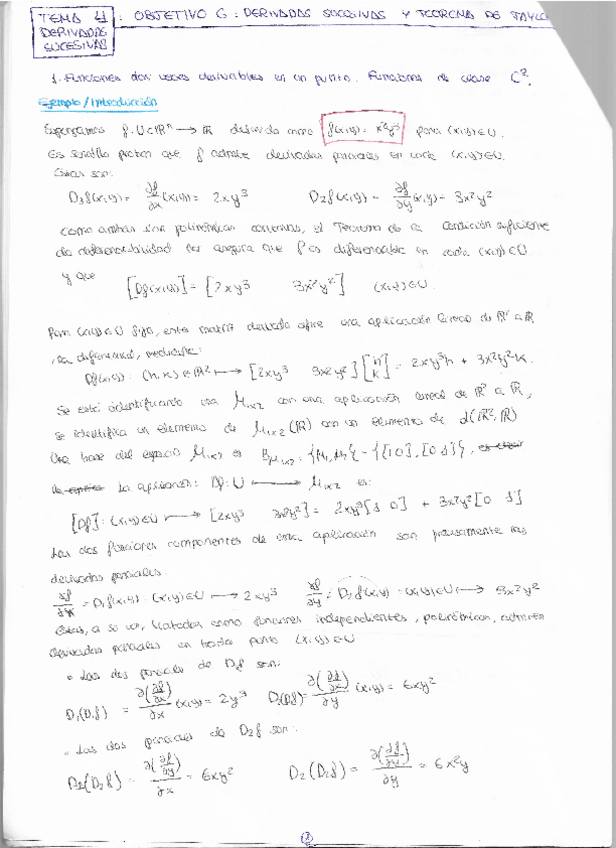 TEMA 4: OBJETIVO 6: DERIVADAS SUCESIVAS Y TEOREMA DE TAYLO
DERIVADAS
SUCESIVAS
1. Funciones dos veces derivables en un punto. Funciones de clase C².
Ejemplo/Introducción
Supongamos f: U⊂ℝⁿ → ℝ definida como f(x,y) = x²y³ para (x,y)∈U.
Es sencillo probar que f admite derivadas parciales en cada (x,y)∈U.
Estas son:
D₁f(x,y) = ∂f/∂x (x,y) = 2xy³ D₂f(x,y) = ∂f/∂y (x,y) = 3x²y²
Como ambas son polinómicas continuas, el Teorema de la condición suficiente
de diferenciabilidad nos asegura que f es diferenciable en cada (x,y)∈U
y que
[Df(x,y)] = [2xy³ 3x²y²] (x,y)∈U.
Para (x,y)∈U fijo, esta matriz derivada define una aplicación lineal de ℝ² a ℝ
, la diferencial, mediante:
Df(x,y): (h,k)∈ℝ² ⟼ [2xy³ 3x²y²] [h k] = 2xy³h + 3x²y²k.
Se está identificando una M₁ₓ₂ con una aplicación lineal de ℝ² a ℝ,
se identifica un elemento de M₁ₓ₂(ℝ) con un elemento de L(ℝ², ℝ)
Una base del espacio M₁ₓ₂ es B_M₁ₓ₂ = {M₁, M₂} = {[1 0], [0 1]},
La aplicación: Df: U ⟶ M₁ₓ₂ es:
[Df]: (x,y)∈U ⟼ [2xy³ 3x²y²] = 2xy³[1 0] + 3x²y²[0 1]
Las dos funciones componentes de esta aplicación son precisamente las
derivadas parciales:
∂f/∂x = D₁f(x,y): (x,y)∈U ⟼ 2xy³ ∂f/∂y = D₂f(x,y): (x,y)∈U ⟼ 3x²y²
Estas, a su vez, tratadas como funciones independientes, polinómicas, admiten
derivadas parciales en todo punto (x,y)∈U
• Las dos parciales de D₁f son:
D₁(D₁f) = ∂(∂f/∂x)/∂x (x,y) = 2y³ D₂(D₁f) = ∂(∂f/∂x)/∂y (x,y) = 6xy²
• Las dos parciales de D₂f son:
D₂(D₂f) = ∂(∂f/∂y)/∂x = 6xy² D₂(D₂f) = ∂(∂f/∂y)/∂y = 6x²y